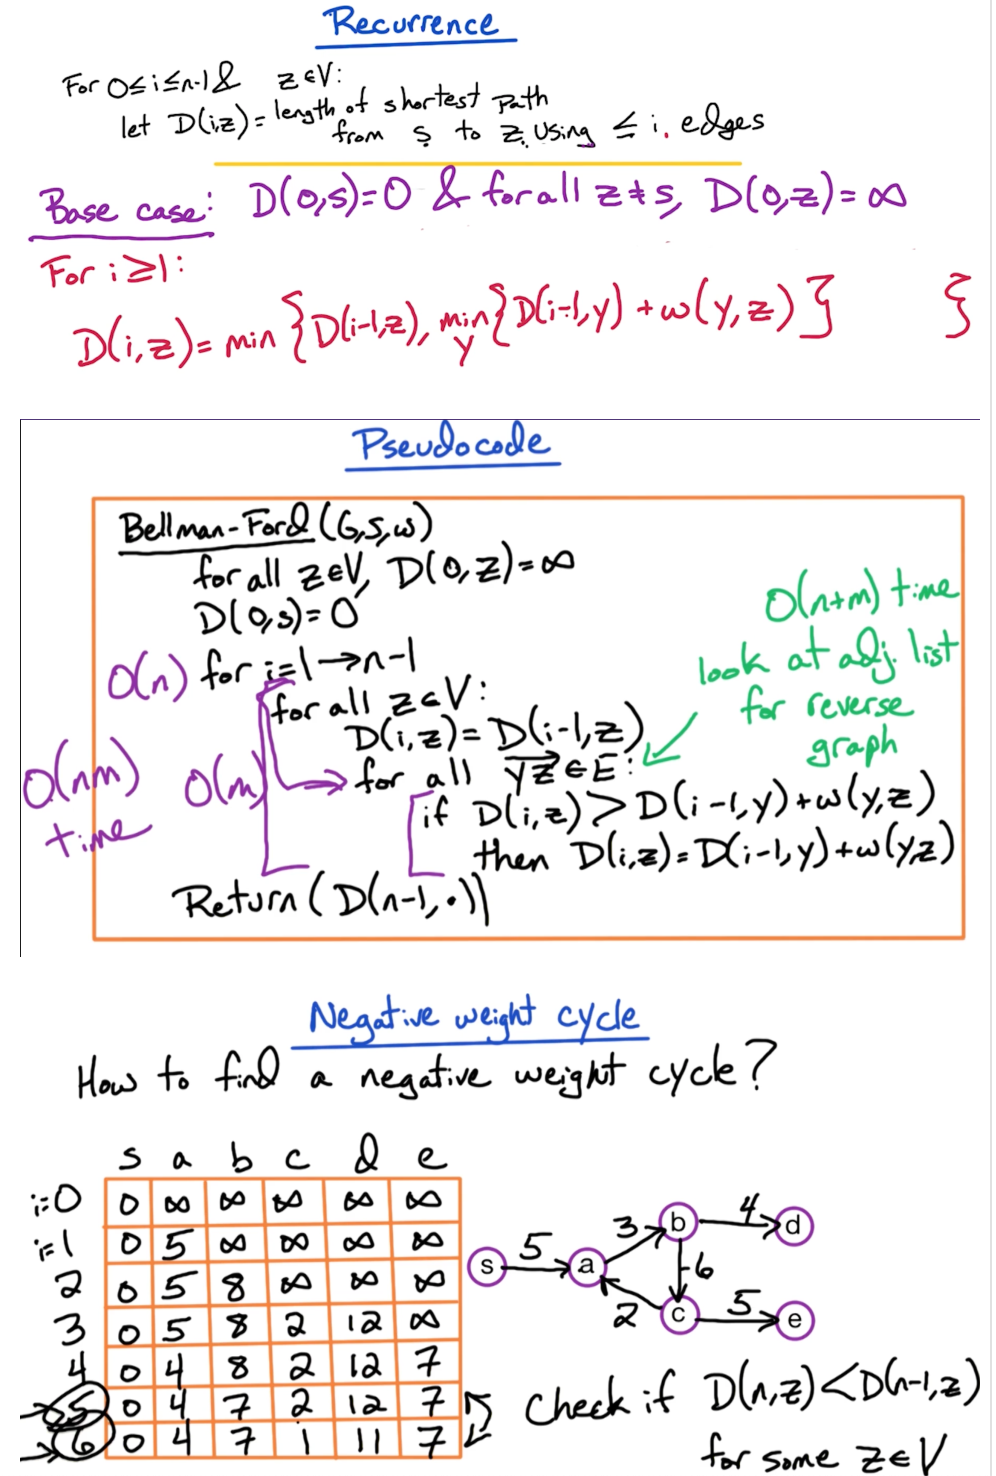 Recurrence
For 0≤i≤n-1 & z∈V:
let D(i,z) = length of shortest path
from s to z using ≤ i edges
Base case: D(0,s)=0 & for all z≠s, D(0,z)=∞
For i≥1:
D(i,z) = min { D(i-1,z), min { D(i-1,y) + w(y,z) } }
y
Pseudocode
Bellman-Ford(G,s,w)
for all z∈V, D(0,z)=∞
D(0,s)=0
O(n+m) time
look at adj. list
for reverse
graph
O(n) for i=1→n-1
for all z∈V:
D(i,z)=D(i-1,z)
O(nm)
time
O(m)
for all yz∈E:
if D(i,z)>D(i-1,y)+w(y,z)
then D(i,z)=D(i-1,y)+w(y,z)
Return(D(n-1,·))
Negative weight cycle
How to find a negative weight cycle?
s a b c d e
i=0 0 ∞ ∞ ∞ ∞ ∞
i=1 0 5 ∞ ∞ ∞ ∞
2 0 5 8 ∞ ∞ ∞
3 0 5 8 2 12 ∞
4 0 4 8 2 12 7
5 0 4 7 2 12 7
6 0 4 7 1 11 7
s 5 a 3 b 4 d
-6
2 c 5 e
check if D(n,z)<D(n-1,z)
for some z∈V